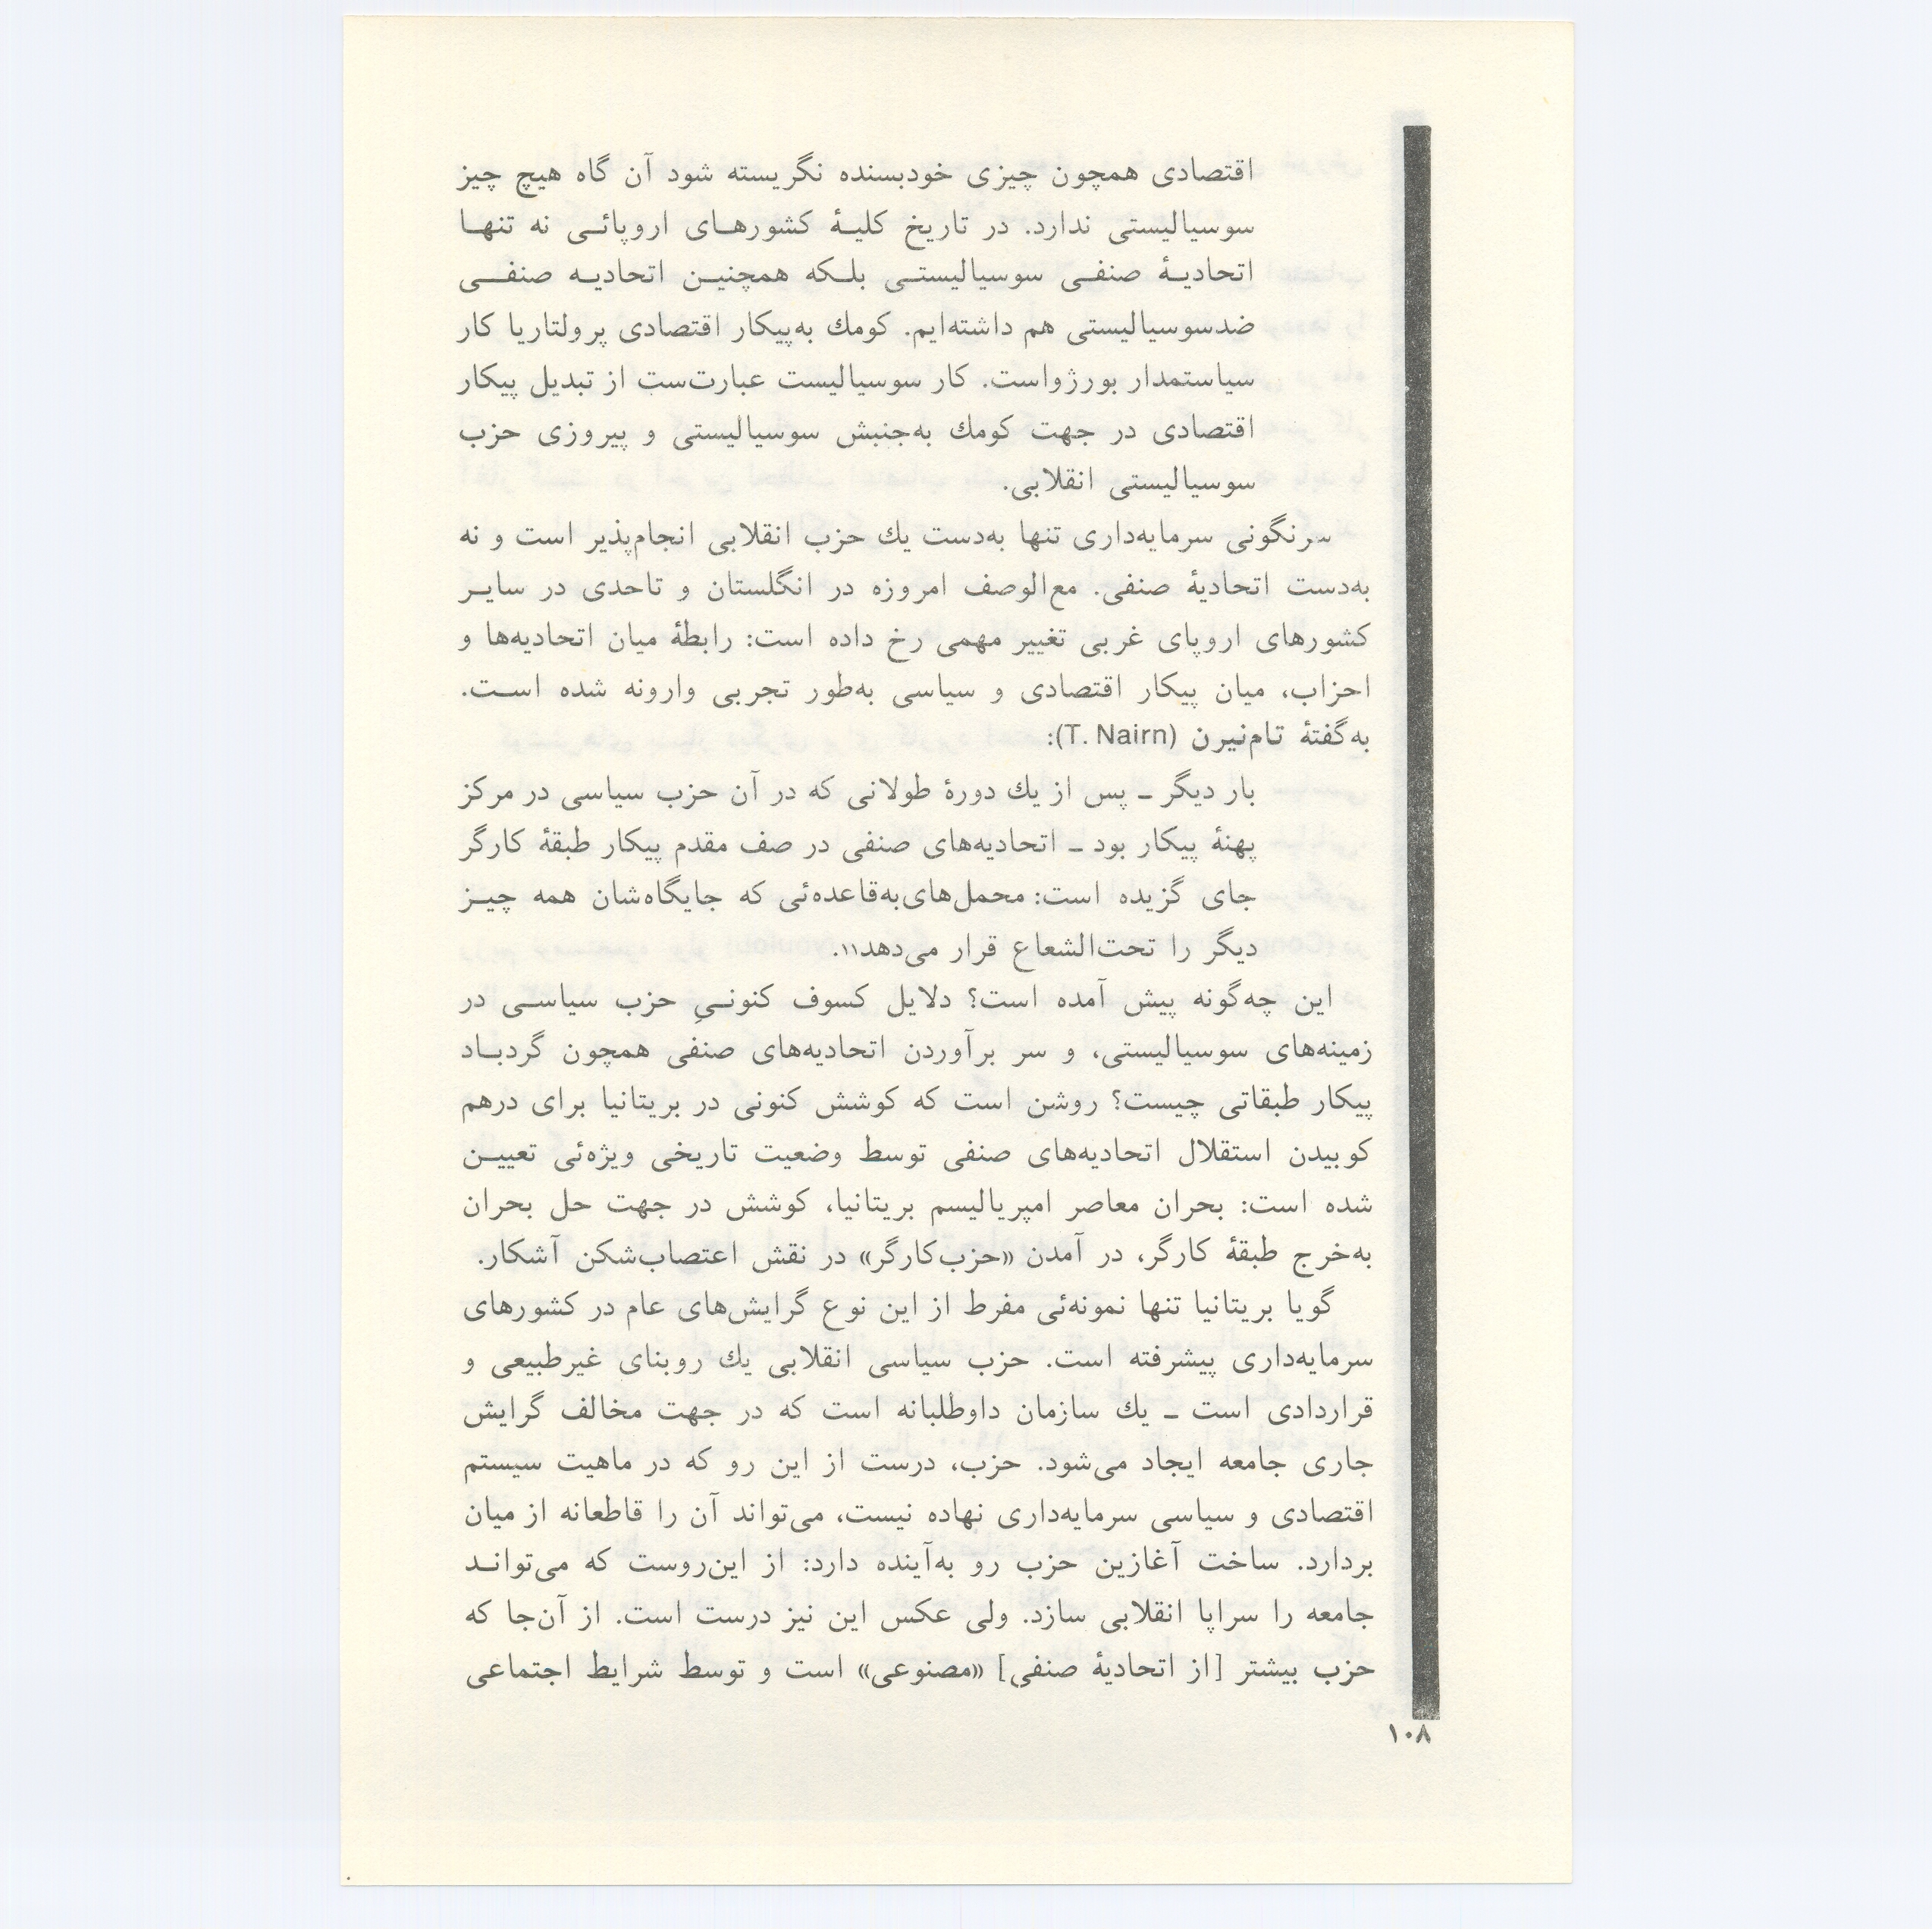 اقتصادی همچون چیزی خودبسنده نگریسته شود آن گاه هیچ چیز
سوسیالیستی ندارد. در تاریخ کلیـۀ کشورهـای اروپائـی نه تنهـا
اتحادیـۀ صنفـی سوسیالیستـی بلـکه همچنیـن اتحادیـه صنفـی
ضدسوسیالیستی هم داشته‌ایم. کومك به‌پیکار اقتصادی پرولتاریا کار
سیاستمدار بورژواست. کار سوسیالیست عبارت‌ست از تبدیل پیکار
اقتصادی در جهت کومك به‌جنبش سوسیالیستی و پیروزی حزب
سوسیالیستی انقلابی.
سرنگونی سرمایه‌داری تنها به‌دست یك حزب انقلابی انجام‌پذیر است و نه
به‌دست اتحادیۀ صنفی. مع‌الوصف امروزه در انگلستان و تاحدی در سایـر
کشورهای اروپای غربی تغییر مهمی رخ داده است: رابطۀ میان اتحادیه‌ها و
احزاب، میان پیکار اقتصادی و سیاسی به‌طور تجربی وارونه شده اسـت.
به‌گفتۀ تام‌نیرن (T. Nairn):
بار دیگر ـ پس از یك دورۀ طولانی که در آن حزب سیاسی در مرکز
پهنۀ پیکار بود ـ اتحادیه‌های صنفی در صف مقدم پیکار طبقۀ کارگر
جای گزیده است: محمل‌های‌به‌قاعده‌ئی که جایگاه‌شان همه چیـز
دیگر را تحت‌الشعاع قرار می‌دهد۱۱.
این چه‌گونه پیش آمده است؟ دلایل کسوف کنونـیِ حزب سیاسـی در
زمینه‌های سوسیالیستی، و سر برآوردن اتحادیه‌های صنفی همچون گردبـاد
پیکار طبقاتی چیست؟ روشن است که کوشش کنونی در بریتانیا برای درهم
کوبیدن استقلال اتحادیه‌های صنفی توسط وضعیت تاریخی ویژه‌ئی تعییـن
شده است: بحران معاصر امپریالیسم بریتانیا، کوشش در جهت حل بحران
به‌خرج طبقۀ کارگر، در آمدن «حزب‌کارگر» در نقش اعتصاب‌شکن آشکار.
گویا بریتانیا تنها نمونه‌ئی مفرط از این نوع گرایش‌های عام در کشورهای
سرمایه‌داری پیشرفته است. حزب سیاسی انقلابی یك روبنای غیرطبیعی و
قراردادی است ـ یك سازمان داوطلبانه است که در جهت مخالف گرایش
جاری جامعه ایجاد می‌شود. حزب، درست از این رو که در ماهیت سیستم
اقتصادی و سیاسی سرمایه‌داری نهاده نیست، می‌تواند آن را قاطعانه از میان
بردارد. ساخت آغازین حزب رو به‌آینده دارد: از این‌روست که می‌توانـد
جامعه را سراپا انقلابی سازد. ولی عکس این نیز درست است. از آن‌جا که
حزب بیشتر [از اتحادیۀ صنفی] «مصنوعی» است و توسط شرایط اجتماعی
۱۰۸